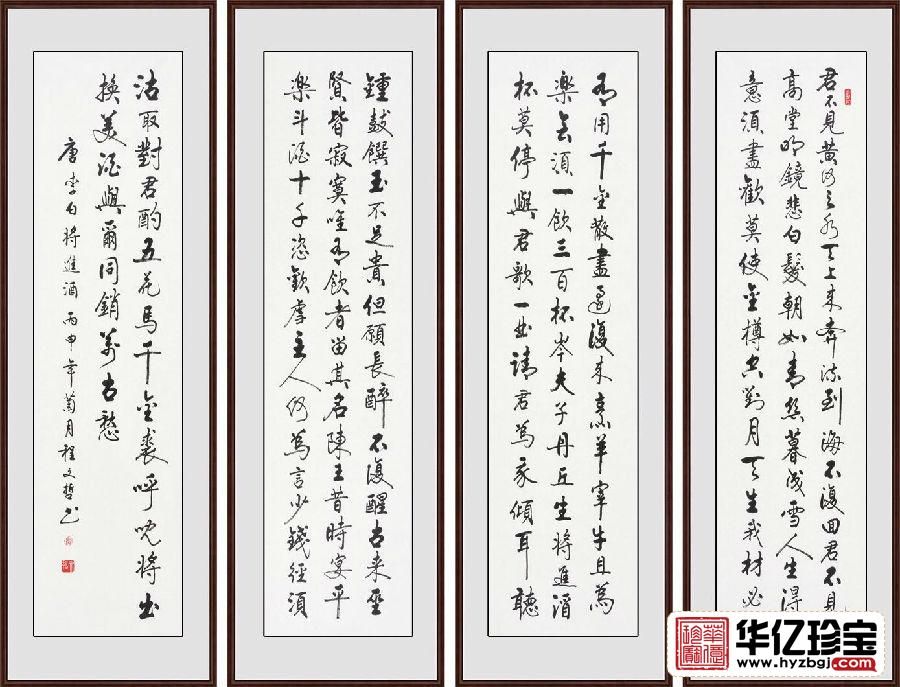 君不見黃河之水天上來奔流到海不復回君不見
高堂明鏡悲白髮朝如青絲暮成雪人生得
意須盡歡莫使金樽空對月天生我材必
有用千金散盡還復來烹羊宰牛且為
楽會須一飲三百杯岑夫子丹丘生將進酒
杯莫停與君歌一曲請君為我傾耳聽
鍾鼓饌玉不足貴但願長醉不復醒古來聖
賢皆寂寞唯有飲者留其名陳王昔時宴平
楽斗酒十千恣歡虐主人何為言少錢徑須
沽取對君酌五花馬千金裘呼兒將出
換美酒與爾同銷萬古愁
唐李白將進酒丙申年菊月程文哲书
华亿珍宝
www.hyzbgj.com